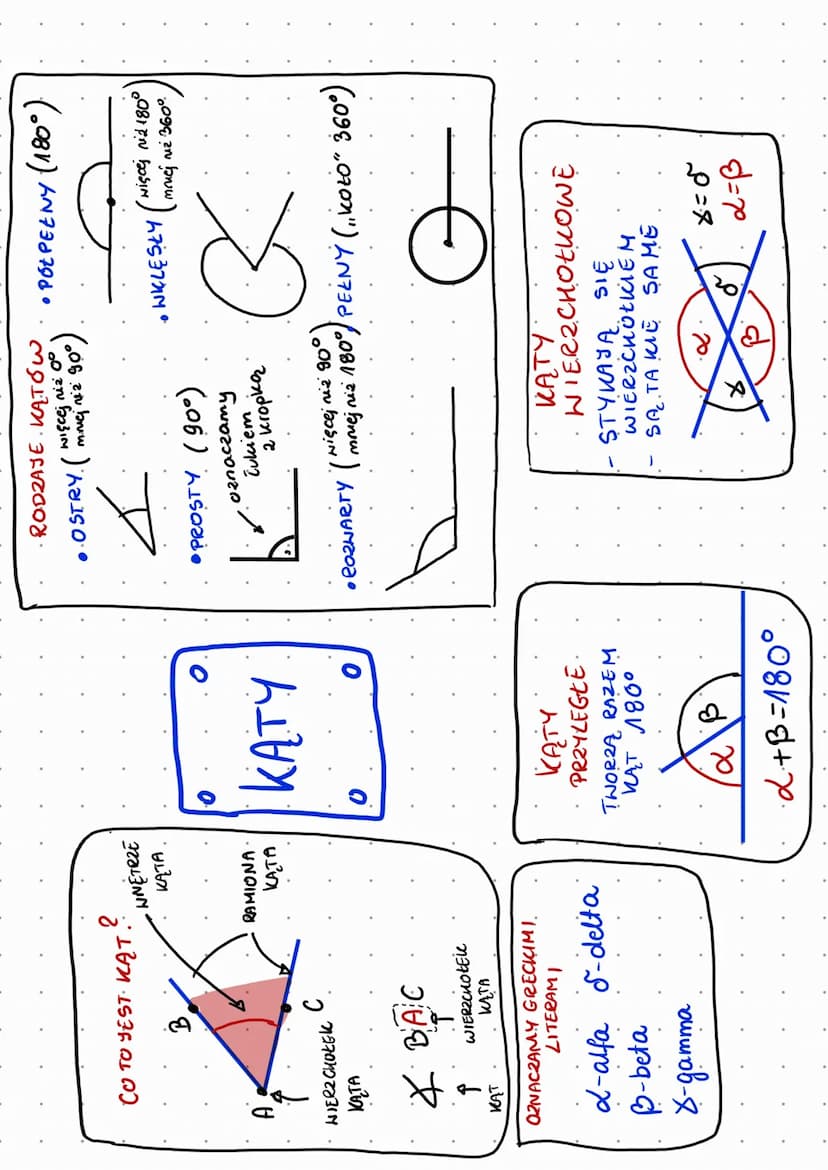 CO TO JEST KĄT?
WNĘTRZE
KĄTA
RAMIONA
KĄTA
B
A
C
WIERZCHOŁEK
KĄTA
∢ BAC
KĄT
WIERZCHOŁEK
KĄTA
KĄTY
RODZAJE KĄTÓW
• OSTRY (więcej niż 0°
mniej niż 90°)
• PÓŁPEŁNY (180°)
• PROSTY (90°)
oznaczamy
łukiem
z kropką
• WKLĘSŁY (więcej niż 180°
mniej niż 360°)
• ROZWARTY (więcej niż 90°
mniej niż 180°)
• PEŁNY („KOŁO” 360°)
OZNACZAMY GRECKIMI
LITERAMI
α-alfa δ-delta
β-beta
γ-gamma
KĄTY
PRZYLEGŁE
TWORZĄ RAZEM
KĄT 180°
α β
α+β=180°
KĄTY
WIERZCHOŁKOWE
- STYKAJĄ SIĘ
WIERZCHOŁKIEM
- SĄ TAKIE SAME
α
γ δ
β
γ=δ
α=β